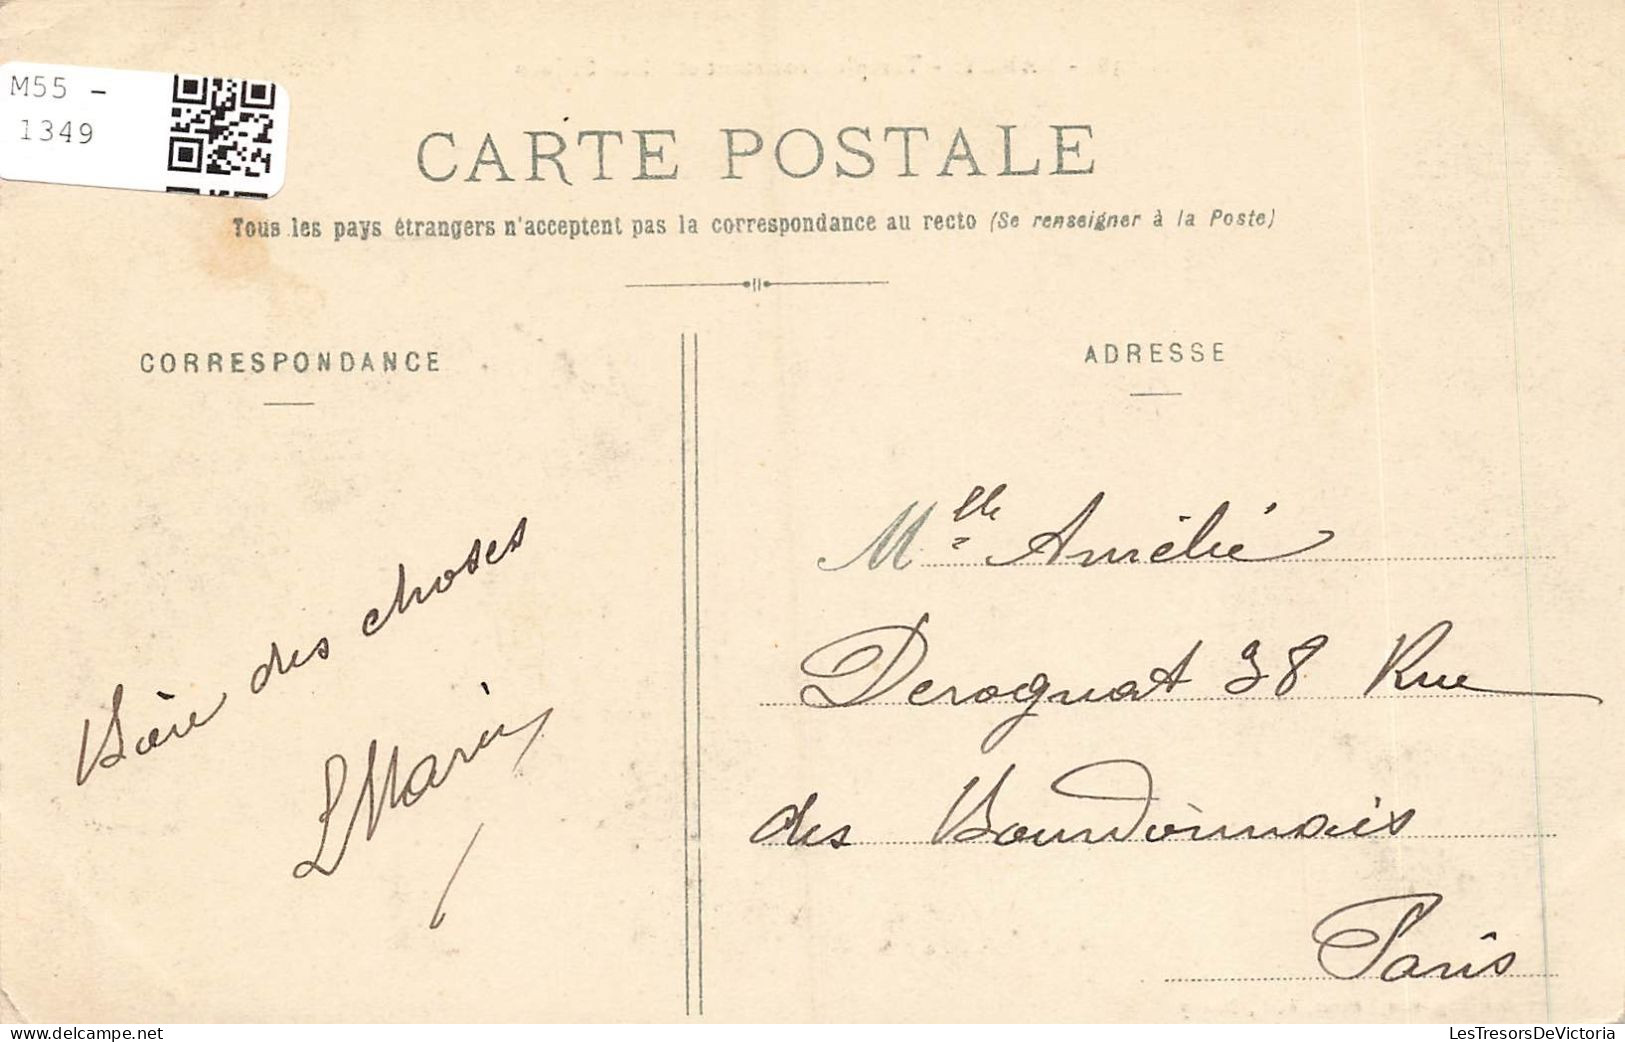 M55 -
1349
CARTE POSTALE
Tous les pays étrangers n'acceptent pas la correspondance au recto (Se renseigner à la Poste)
CORRESPONDANCE
Bien des choses
L Marin
ADRESSE
Mlle Amélie
Derognat 38 Rue
des Bourdonnais
Paris
LesTresorsDeVictoria
www.delcampe.net